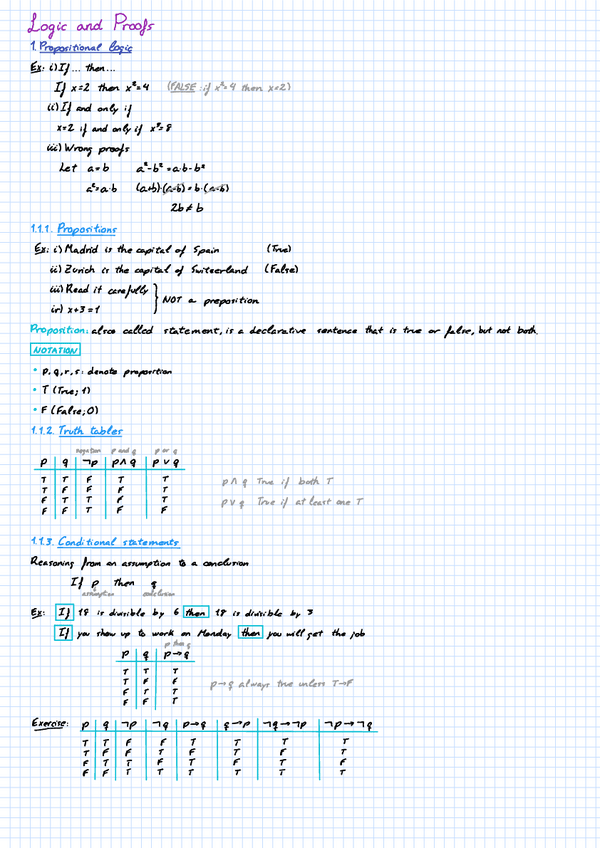 Logic and Proofs
1. Propositional logic
Ex: i) If ... then...
If x=2 then x²=4 (FALSE: if x²=4 then x=2)
(ii) If and only if
x=2 if and only if x³=8
(iii) Wrong proofs
Let a=b a²-b²=a·b-b²
a²=a·b (a+b)·(a-b)=b·(a-b)
2b≠b
1.1.1. Propositions
Ex: i) Madrid is the capital of Spain (True)
ii) Zurich is the capital of Switzerland (False)
iii) Read it carefully
iv) x+3=1 } NOT a preposition
Proposition: also called statement, is a declarative sentence that is true or false, but not both.
NOTATION
• p, q, r, s: denote proposition
• T (True; 1)
• F (False; 0)
1.1.2. Truth tables
negation p and q p or q
p q ¬p p∧q p∨q
T T F T T
T F F F T p∧q True if both T
F T T F T p∨q True if at least one T
F F T F F
1.1.3. Conditional statements
Reasoning from an assumption to a conclusion
If p then q
assumption conclusion
Ex: If 18 is divisible by 6 then 18 is divisible by 3
If you show up to work on Monday then you will get the job
p then q
p q p→q
T T T
T F F p→q always true unless T→F
F T T
F F T
Exercise: p q ¬p ¬q p→q q→p ¬q→¬p ¬p→¬q
T T F F T T T T
T F F T F T F T
F T T F T F T F
F F T T T T T T